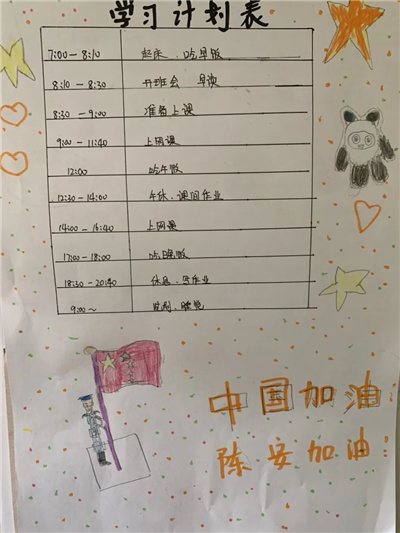 学习计划表
7:00－8:10 起床、吃早饭
8:10－8:30 开班会 早读
8:30－9:00 准备上课
9:00－11:40 上网课
12:00 吃午饭
12:30－14:00 午休、课间作业
14:00－16:40 上网课
17:00－18:00 吃晚饭
18:30－20:40 休息、写作业
9:00～ 洗漱、睡觉
中国加油
陈安加油